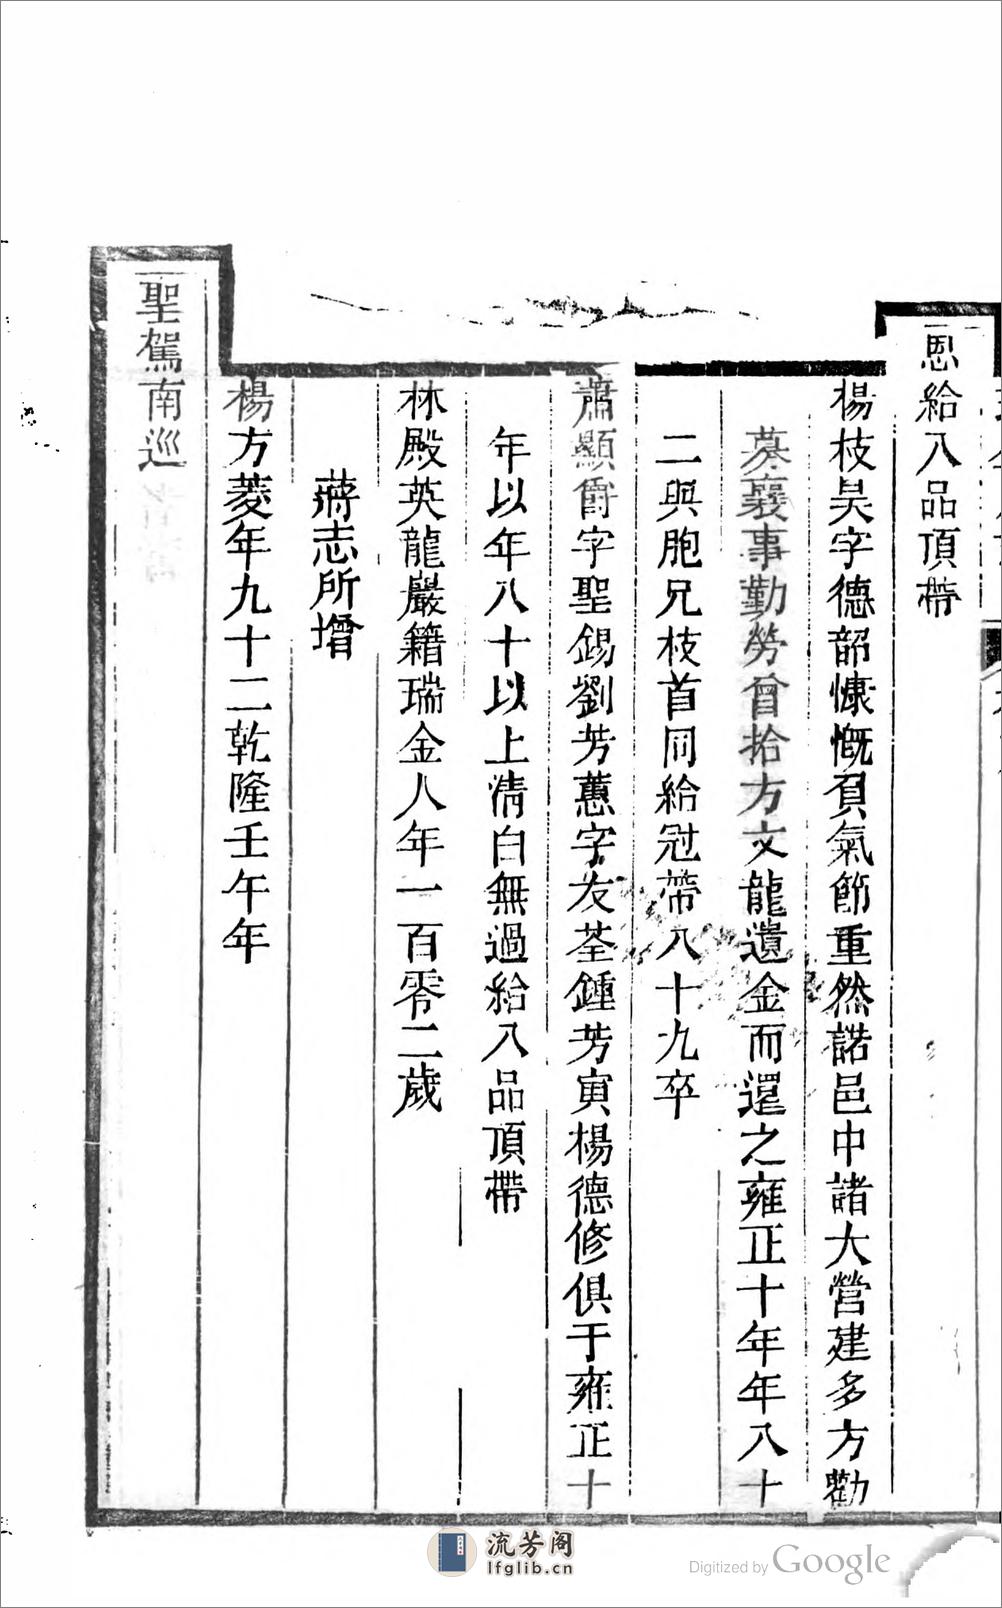 恩給八品頂帶
楊枝昊字德韶慷慨負氣節重然諾邑中諸大營建多方勸
募襄事勤勞曾拾方文龍遺金而還之雍正十年年八十
二與胞兄枝首同給冠帶八十九卒
蕭顯爵字聖錫劉芳蕙字友荃鍾芳寅楊德修俱于雍正十
年以年八十以上清白無過給八品頂帶
林殿英龍嚴籍瑞金人年一百零二歲
蔣志所增
楊方菱年九十二乾隆壬午年
聖駕南巡
流芳阁
lfglib.cn
Digitized by Google